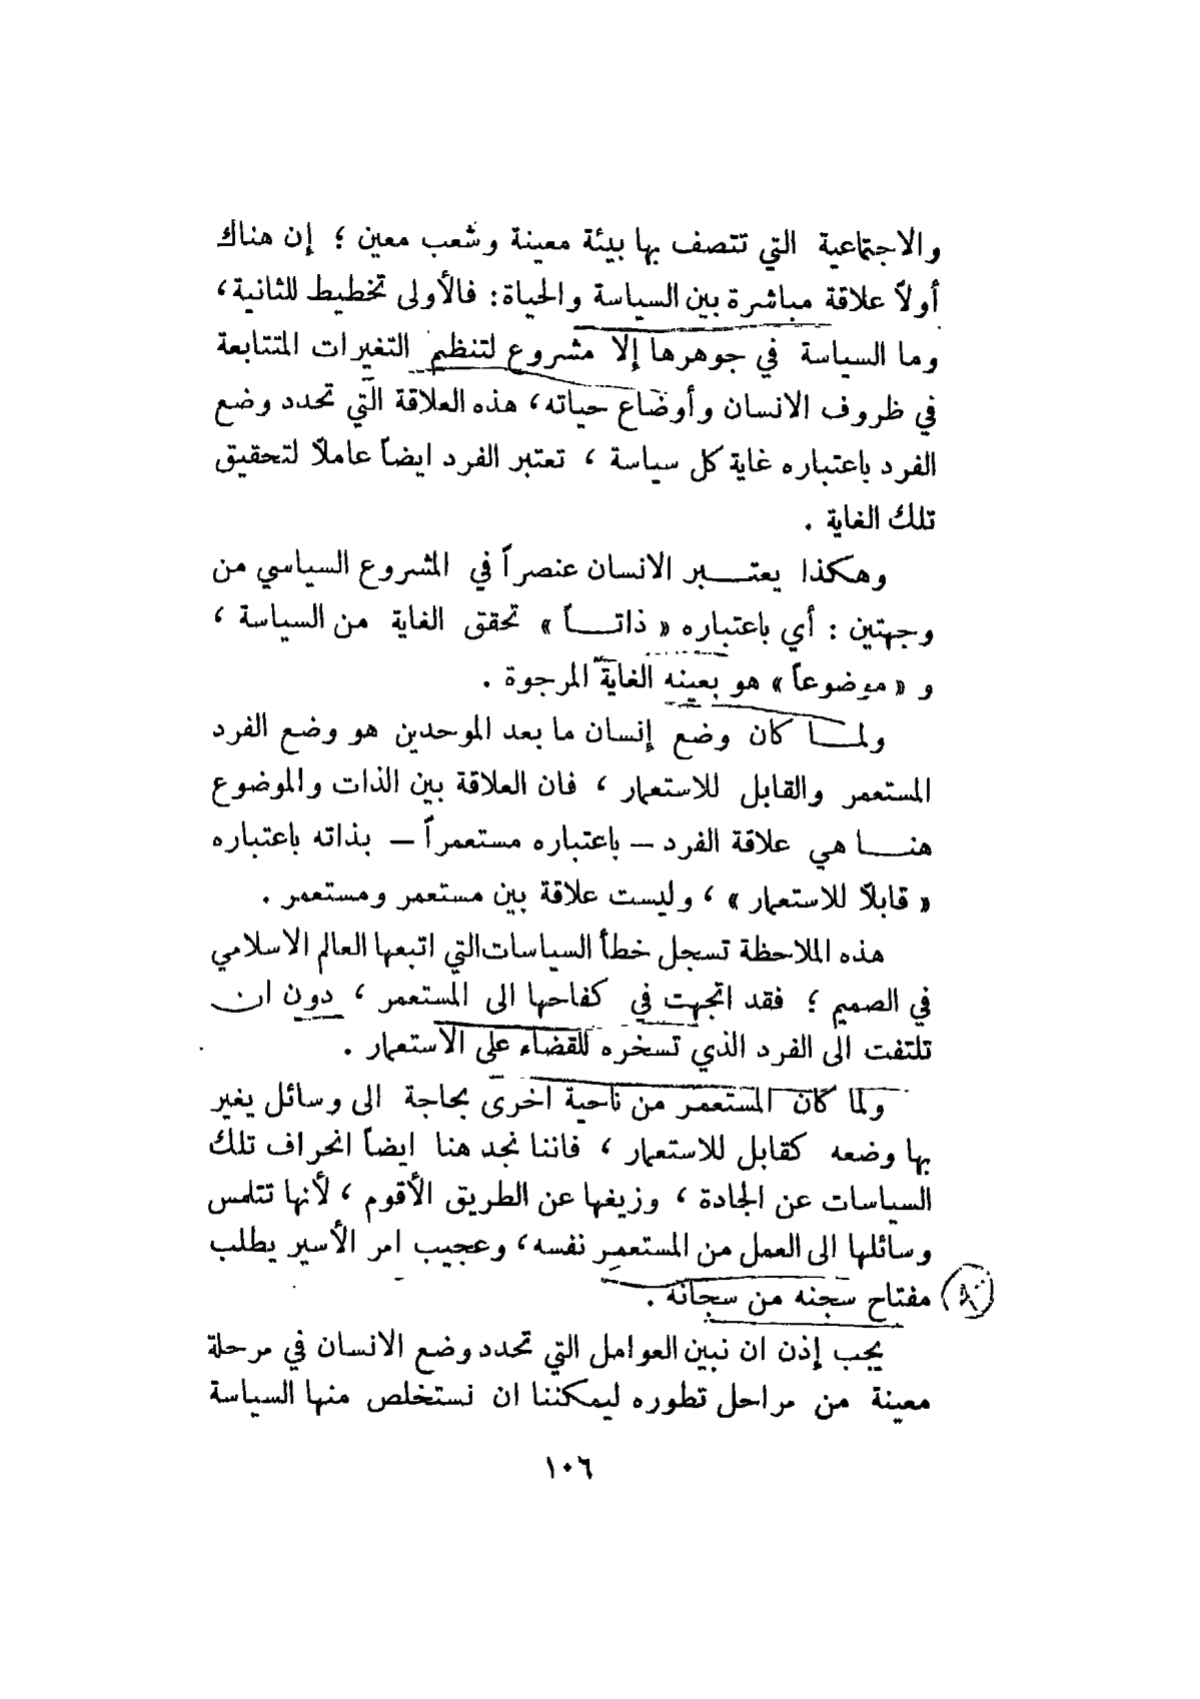 والاجتماعية التي تتصف بها بيئة معينة وشعب معين ؛ إن هناك
أولاً علاقة مباشرة بين السياسة والحياة: فالأولى تخطيط للثانية ،
وما السياسة في جوهرها إلا مشروع لتنظيم التغيرات المتتابعة
في ظروف الانسان وأوضاع حياته، هذه العلاقة التي تحدد وضع
الفرد باعتباره غاية كل سياسة ، تعتبر الفرد ايضاً عاملاً لتحقيق
تلك الغاية .
وهكذا يعتبر الانسان عنصراً في المشروع السياسي من
وجهتين : أي باعتباره « ذاتاً » تحقق الغاية من السياسة ،
و « موضوعاً » هو بعينه الغاية المرجوة .
ولما كان وضع إنسان ما بعد الموحدين هو وضع الفرد
المستعمر والقابل للاستعمار ، فان العلاقة بين الذات والموضوع
هنا هي علاقة الفرد – باعتباره مستعمراً – بذاته باعتباره
« قابلاً للاستعمار » ، وليست علاقة بين مستعمر ومستعمر .
هذه الملاحظة تسجل خطأ السياسات التي اتبعها العالم الاسلامي
في الصميم ؛ فقد اتجهت في كفاحها الى المستعمر ، دون ان
تلتفت الى الفرد الذي تسخره للقضاء على الاستعمار .
ولما كان المستعمر من ناحية اخرى بحاجة الى وسائل يغير
بها وضعه كقابل للاستعمار ، فاننا نجد هنا ايضاً انحراف تلك
السياسات عن الجادة ، وزيغها عن الطريق الأقوم ، لأنها تتلمس
وسائلها الى العمل من المستعمِر نفسه، وعجيب امر الأسير يطلب
مفتاح سجنه من سجانه .
يجب إذن ان نبين العوامل التي تحدد وضع الانسان في مرحلة
معينة من مراحل تطوره ليمكننا ان نستخلص منها السياسة
١٠٦